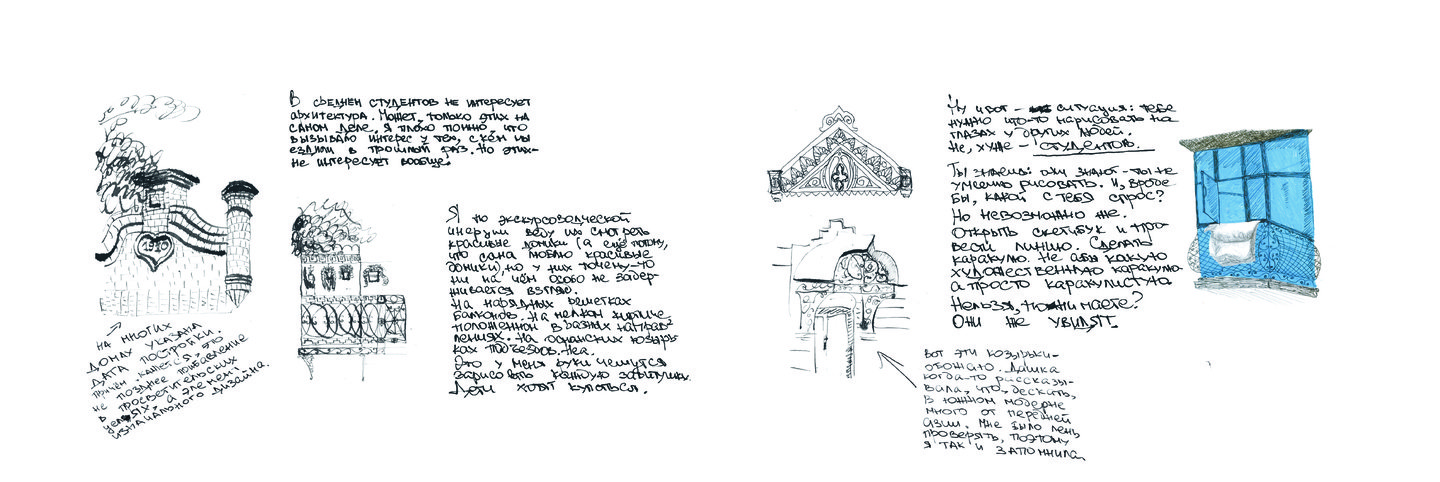 В среднем студентов не интересует
архитектура. Может, только этих на
самом деле, я плохо помню, что
вызывало интерес у тех, с кем мы
ездили в прошлый раз. Но этих-
не интересует вообще!
1910
На многих
домах указана
дата постройки.
Причём, кажется, это
не позднее прибавление
в просветительских
целях, а элемент
изначального дизайна.
Я по экскурсоводческой
инерции веду их смотреть
красивые домики (а ещё потому,
что сама люблю красивые
домики) но у них почему-то
ни на чём особо не задер-
живается взгляд.
На нарядных решетках
балконов. На мелком кирпиче
положенном в разных направ-
лениях. На османских козырь-
ках подъездов. Неа.
Это у меня руки чешутся
зарисовать каждую завитушку.
Дети хотят купаться.
Ну и вот - ситуация: тебе
нужно что-то нарисовать на
глазах у других людей.
Не, хуже - студентов.
Ты знаешь: они знают - ты не
умеешь рисовать. И, вроде
бы, какой с тебя спрос?
Но невозможно же.
Открыть скетчбук и про-
вести линию. Сделать
каракулю. Не абы какую
художественную каракулю
а просто каракулистую
Нельзя, понимаете?
Они же увидят.
Вот эти козырьки-
обожаю. Дашка
когда-то рассказы-
вала, что, дескать,
в южном модерне
много от передней
Азии. Мне было лень
проверять, поэтому
я так и запомнила.